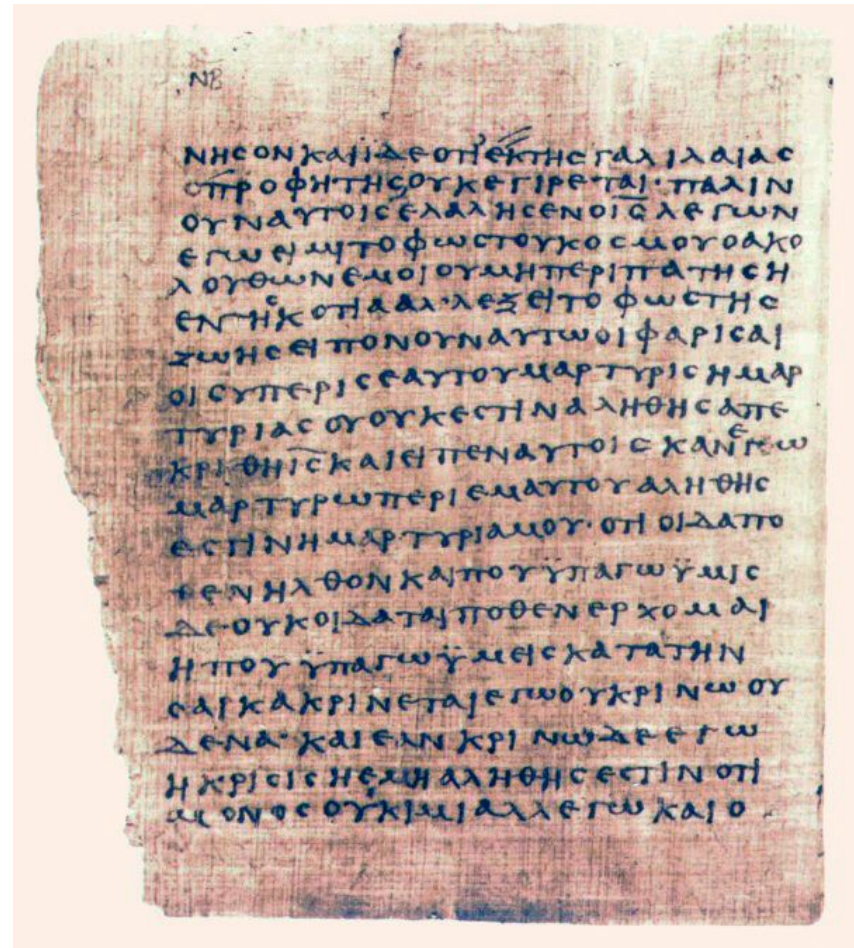 ΝΒ
ΝΗϹΟΝΚΑΙΪΔΕΟΤΙΕΚΤΗϹΓΑΛΙΛΑΙΑϹ
ΟΠΡΟΦΗΤΗϹΟΥΚΕΓΙΡΕΤΑΙ·ΠΑΛΙΝ
ΟΥΝΑΥΤΟΙϹΕΛΑΛΗϹΕΝΟΙ̅Ϲ̅ΛΕΓΩΝ
ΕΓΩΕΙΜΙΤΟΦΩϹΤΟΥΚΟϹΜΟΥΟΑΚΟ
ΛΟΥΘΩΝΕΜΟΙΟΥΜΗΠΕΡΙΠΑΤΗϹΗ
ΕΝΤΗϹΚΟΤΙΑΑΛ·ΛΕΞΕΙΤΟΦΩϹΤΗϹ
ΖΩΗϹΕΙΠΟΝΟΥΝΑΥΤΩΟΙΦΑΡΙϹΑΙ
ΟΙϹΥΠΕΡΙϹΕΑΥΤΟΥΜΑΡΤΥΡΙϹΗΜΑΡ
ΤΥΡΙΑϹΟΥΟΥΚΕϹΤΙΝΑΛΗΘΗϹΑΠΕ
ΚΡΙΘΗΙ̅Ϲ̅ΚΑΙΕΙΠΕΝΑΥΤΟΙϹΚΑΝΕΓΩ
ΜΑΡΤΥΡΩΠΕΡΙΕΜΑΥΤΟΥΑΛΗΘΗϹ
ΕϹΤΙΝΗΜΑΡΤΥΡΙΑΜΟΥ·ΟΤΙΟΙΔΑΠΟ
ΘΕΝΗΛΘΟΝΚΑΙΠΟΥΫΠΑΓΩΫΜΙϹ
ΔΕΟΥΚΟΙΔΑΤΑΙΠΟΘΕΝΕΡΧΟΜΑΙ
ΗΠΟΥΫΠΑΓΩΫΜΕΙϹΚΑΤΑΤΗΝ
ϹΑΙΚΑΚΡΙΝΕΤΑΙΕΓΩΟΥΚΡΙΝΩΟΥ
ΔΕΝΑ·ΚΑΙΕΑΝΚΡΙΝΩΔΕΕΓΩ
ΗΚΡΙϹΙϹΗΕΜΗΑΛΗΘΗϹΕϹΤΙΝΟΤΙ
ΜΟΝΟϹΟΥΚΙΜΙΑΛΛΕΓΩΚΑΙΟ